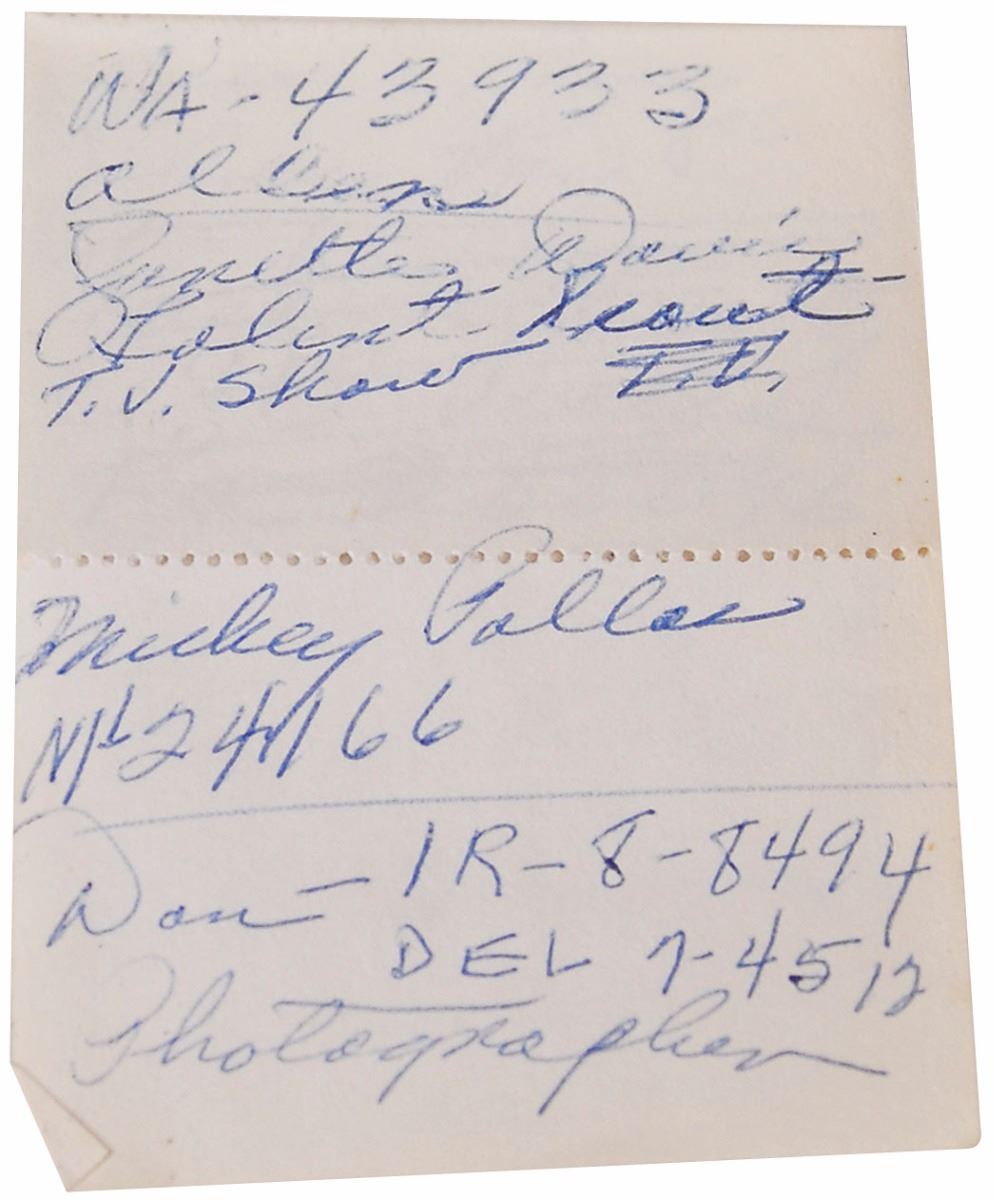 WA-43933
Janette Davis
Talent Scout
T.V. Show T.V.
Mickey
24166
Don - IR-8-8494
DEL 7-4512
Photographer